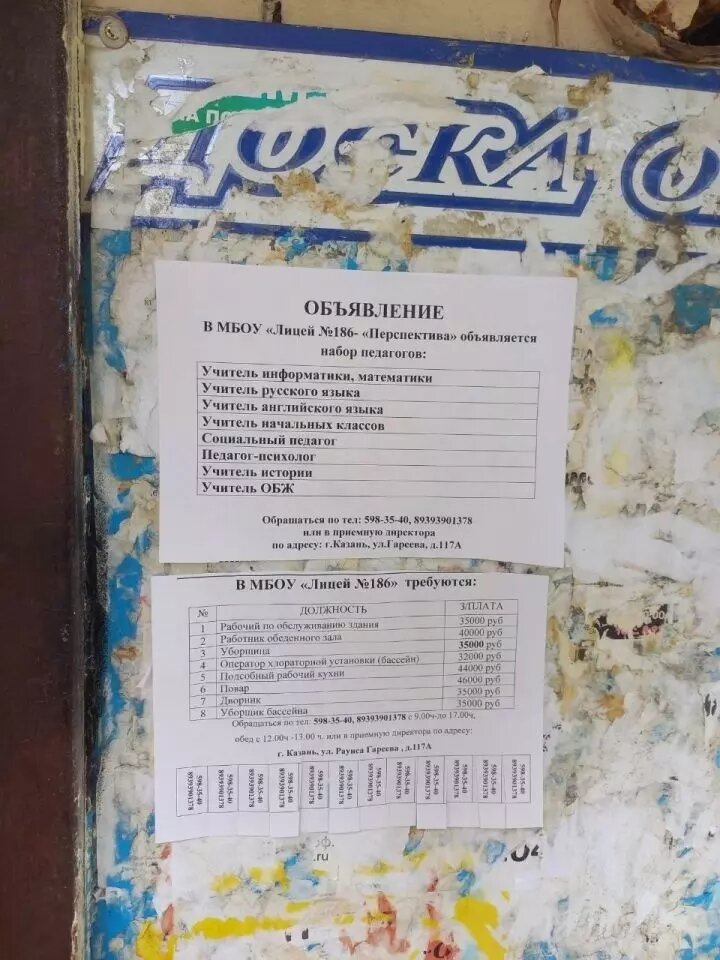 НА ПО
Доска О
ОБЪЯВЛЕНИЕ
В МБОУ «Лицей №186- «Перспектива» объявляется
набор педагогов:
Учитель информатики, математики
Учитель русского языка
Учитель английского языка
Учитель начальных классов
Социальный педагог
Педагог-психолог
Учитель истории
Учитель ОБЖ
Обращаться по тел: 598-35-40, 89393901378
или в приемную директора
по адресу: г.Казань, ул.Гареева, д.117А
В МБОУ «Лицей №186» требуются:
№ ДОЛЖНОСТЬ З/ПЛАТА
1 Рабочий по обслуживанию здания 35000 руб
2 Работник обеденного зала 40000 руб
3 Уборщица 35000 руб
4 Оператор хлораторной установки (бассейн) 32000 руб
5 Подсобный рабочий кухни 44000 руб
6 Повар 46000 руб
7 Дворник 35000 руб
8 Уборщик бассейна 35000 руб
Обращаться по тел: 598-35-40, 89393901378 с 9.00ч-до 17.00ч,
обед с 12.00ч -13.00 ч. или в приемную директора по адресу:
г. Казань, ул. Рауиса Гареева , д.117А
598-35-40 89393901378
598-35-40 89393901378
598-35-40 89393901378
598-35-40 89393901378
598-35-40 89393901378
598-35-40 89393901378
598-35-40 89393901378
598-35-40 89393901378
598-35-40 89393901378
598-35-40 89393901378
598-35-40 89393901378
598-35-40 89393901378
.ru